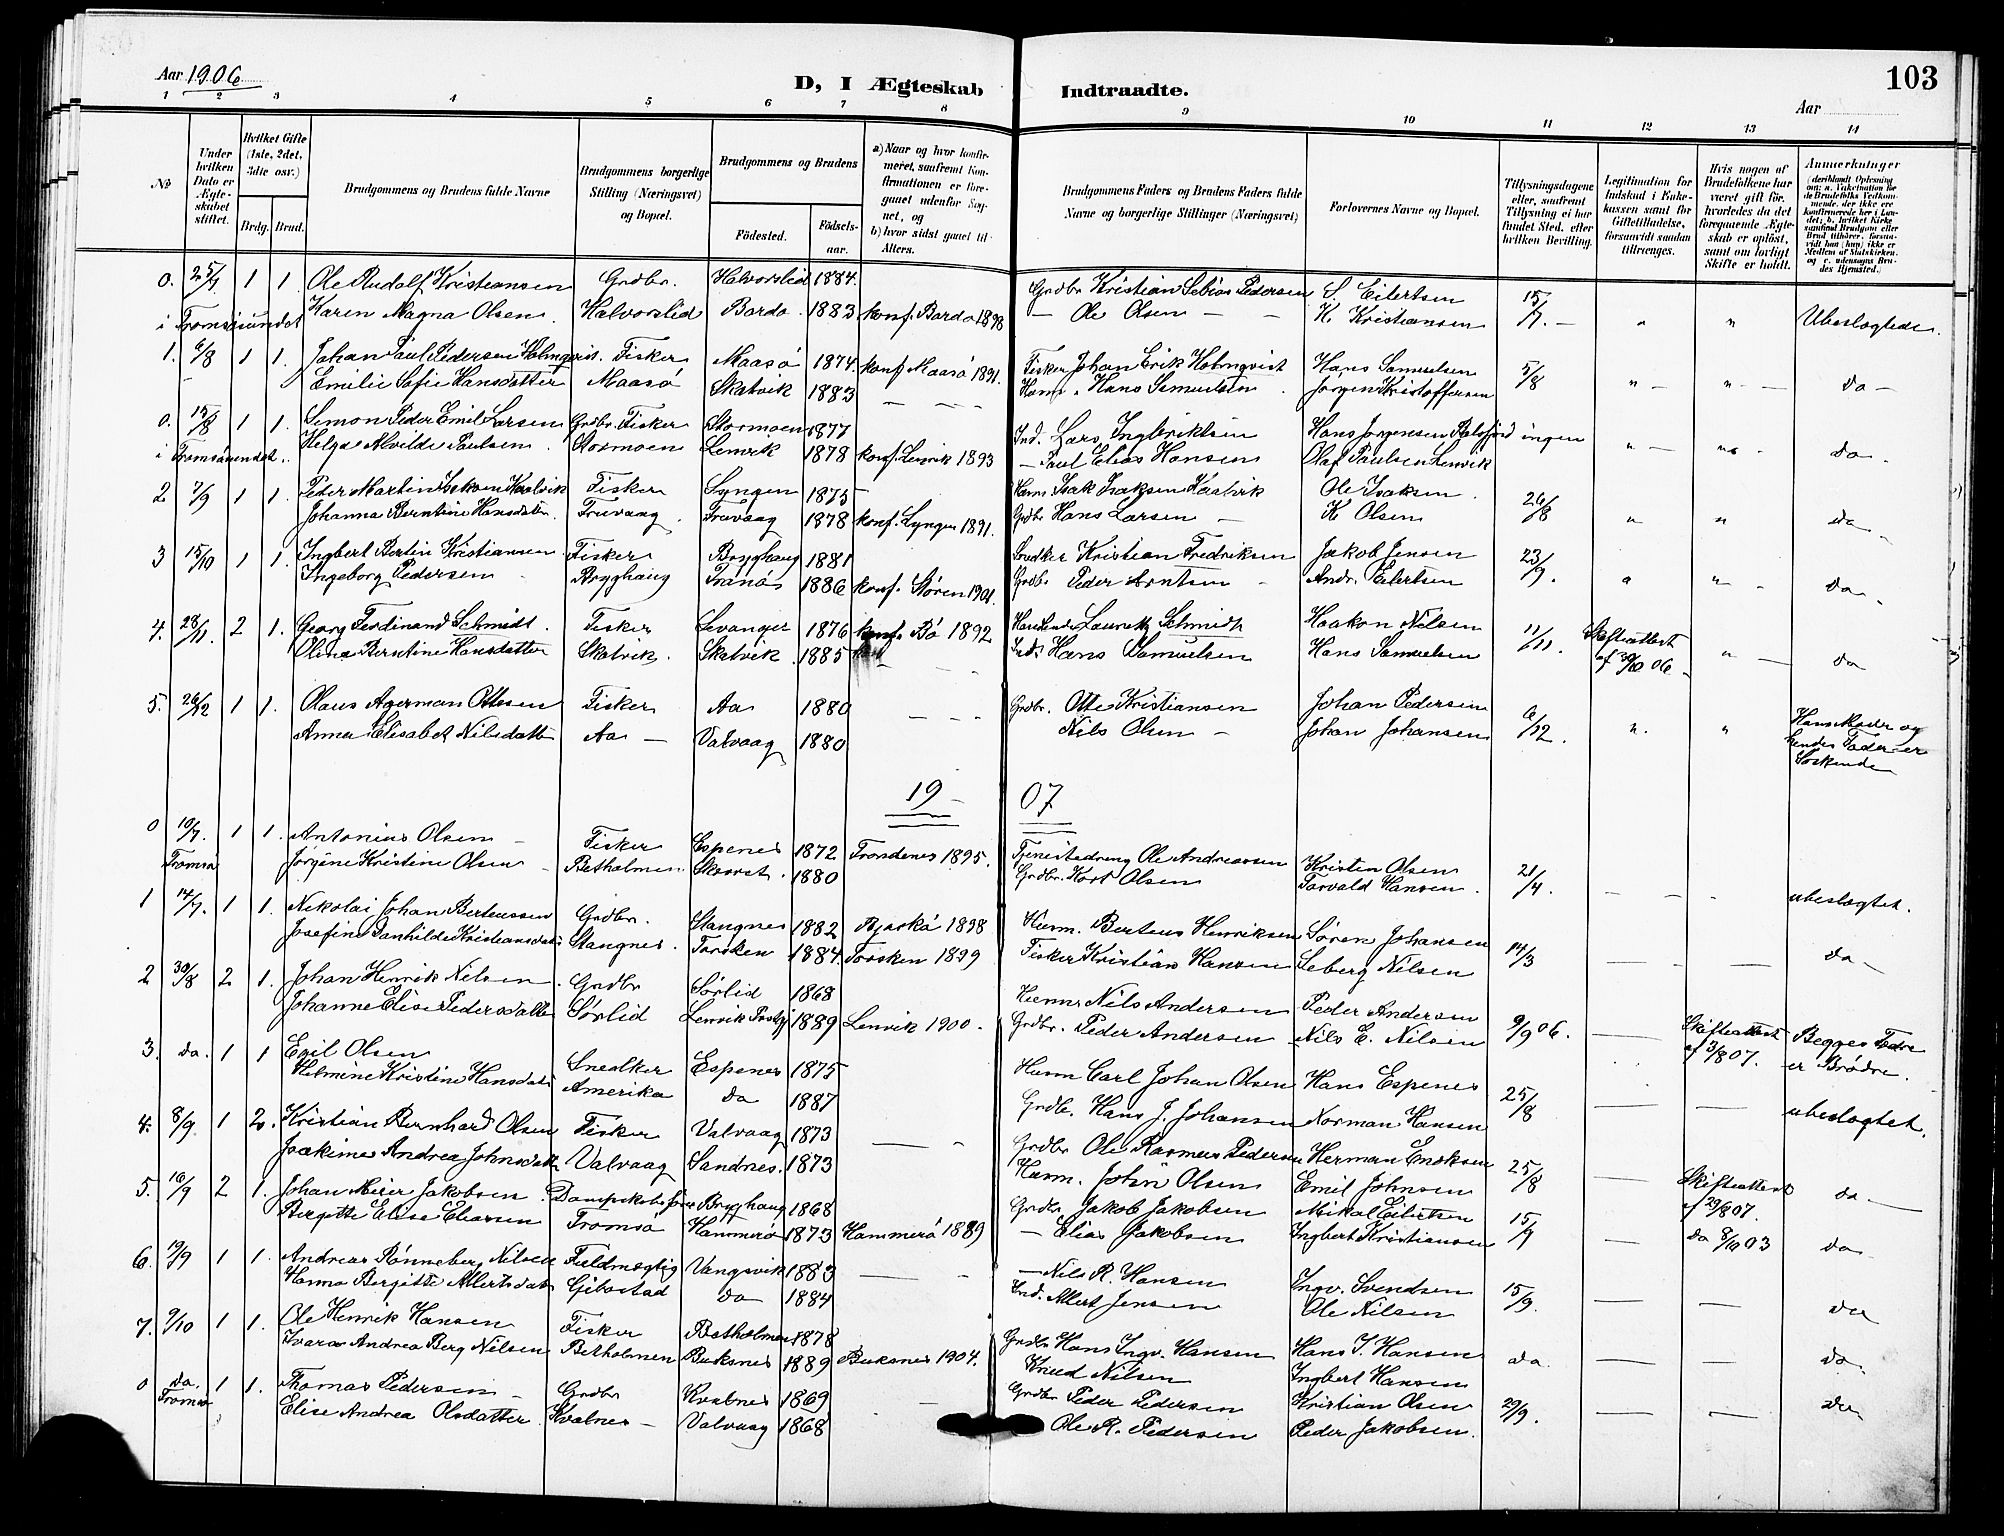 Aar 1906
D, I Ægteskab Indtraadte.
103
Aar
1 2 3 4 5 6 7 8 9 10 11 12 13 14
No
Under hvilken Dato er Ægteskabet stiftet.
Hvilket Gifte (1ste, 2det, 3die osv.)
Brdg. Brud.
Brudgommens og Brudens fulde Navne
Brudgommens borgerlige Stilling (Næringsvei) og Bopæl.
Brudgommens og Brudens
Fødested. Fødselsaar.
a) Naar og hvor konfirmeret, saafremt Konfirmationen er foregaaet udenfor Sognet, og
b) hvor sidst gaaet til Alters.
Brudgommens Faders og Brudens Faders fulde Navne og borgerlige Stillinger (Næringsvei)
Forlovernes Navne og Bopæl.
Tillysningsdagene eller, saafremt Tillysning ei har fundet Sted, efter hvilken Bevilling.
Legitimation for Indskud i Enkekassen samt for Giftetilladelse, forsaavidt saadan tiltrænges.
Hvis nogen af Brudefolkene har været gift før, hvorledes da det foregaaende Ægteskab er opløst, samt om lovligt Skifte er holdt.
Anmerkninger
0. 25/7 1 1 Ole Rudolf Kristiansen Grdbr. Halvorslid 1884. Grdbr Kristian Sebios Pedersen S. Eilertsen 15/7. —
i Tromsøsundet Karen Magna Olsen. Halvorslid Bardo. 1883 konf. Bardo 1898 — Ole Olsen — — K. Kristiansen " " Ubeslægtede.
1. 6/8 1 1. Johan Paul Pedersen Holmqvist. Fisker Maasø 1874. konf. Maasø 1891. Fisker Johan Erik Holmqvist Hans Samuelsen 5/8
Emilie Sofie Hansdatter Maasø Skatvik 1883 — — — Hans Samuelsen Jørgen Kristoffersen " — " — do —
0. 15/8 1 1. Simon Peder Emil Larsen Grdbr. Fisker Stormoen 1877 Ind. Lars Ingbriktsen Hans Jørgensen Balsfjord ingen
i Tromsøsundet. Helga Alvilde Paulsen. Stormoen Lenvik 1878 konf. Lenvik 1893 — Paul Elias Hansen Olaf Paulsen Lenvik " — do
2 7/9 1 1. Peder Martin Isaksen Kaalvik Fisker Lyngen 1875 Isak Isaksen Ole Isaksen. 26/8
Johanna Berntine Hansdatter. Truvaag. Truvaag 1878 konf. Lyngen 1891. Grdbr Hans Larsen — K. Olsen " " do
3 15/10 1 1. Ingbert Bertin Kristiansen Fisker Brygghaug 1881 Kristian Fredriksen Jakob Jensen 23/9.
Ingeborg Pedersen Brygghaug Tranø 1886 konf. Støren 1901. Grdbr. Peder Arntsen — Andr. Eilertsen " " do
4. 28/11. 2 1. Georg Ferdinand Schmidt. Fisker Levanger 1876 konf. Bø 1892 Lauretz Schmidt Haakon Nilsen 11/11. Skifteattest
Olina Berntine Hansdatter Skatvik. Skatvik. 1885 — — Ind. Hans Samuelsen Hans Samuelsen af 30/10 06. " — do
5. 26/12 1 1. Olaus Agerman Ottesen Fisker Aa 1880 — — — Grdbr. Otte Kristiansen Johan Pedersen 6/12.
Anna Elisabet Nilsdatter Aa — Valvaag 1880 Nils Olsen — Johan Johansen " " Hans Moder og hendes Fader er Søskende
19 — 07
0 10/7 1 1. Antonius Olsen — Fisker Espenes 1872 Trondenes 1895. Tjenestedreng Ole Andreassen Kristen Olsen 21/4.
Tromsø Jørgine Kristine Olsen — Betholmen. 1880 Grdbr. Kort Olsen Torvald Hansen. — — ubeslægtet.
1 14/7. 1 1. Nikolai Johan Berteussen Grdbr. Stangnes 1882 Bjarkø 1898 Husm. Berteus Henriksen Søren Johansen 14/3
Josefine Ranhilde Kristiansdatter Stangnes. Torsken 1884. Torsken 1899 Fisker Kristian Hansen Seberg Nilsen — — do —
2 30/8 2 1. Johan Henrik Nilsen Grdbr Sørlid 1868 Husm. Nils Andersen Peder Andersen
Johanne Elise Pedersdatter Sørlid Lenvik Prstgj 1889 Lenvik 1900. Grdbr. Peder Andersen Nils E. Nilsen 9/9 06. — Skifteattest af 3/8 07. Begges Fædre er Brødre.
3. do. 1 1 Emil Olsen Snedker Espenes 1875 Husm Carl Johan Olsen Hans Espenes 25/8
Helmine Kristine Hansdatter Amerika do 1887 Grdbr. Hans J. Johansen Norman Hansen — — ubeslægtet.
4. 8/9. 1 2. Kristian Bernhard Olsen Fisker Valvaag 1873 — Grdbr Ole Rasmus Pedersen Herman Eriksen 25/8
Joakime Andrea Johnsdatter Valvaag Sandnes. 1873 Husm. John Olsen Emil Johnsen — Skifteattest af 29/8 07. do —
5. 16/9 2 1. Johan Meier Jakobsen. Brygghaug 1868 Grdbr Jakob Jakobsen Mikal Eilertsen 15/9
Bergitte Elise Eliassen Tromsø Hammerø 1873 Hammerø 1889 — Elias Jakobsen Ingbert Kristiansen — do 8/10 03 do
6. 19/9 1 1. Andreas Rønneberg Nilsen Fuldmægtig Vangsvik 1883 — — Nils R. Hansen Ingv. Svendsen 15/9.
Hanna Bergitte Albertsdatter Gibostad do 1884 Ind. Albert Jensen Ole Nilsen — — do
7. 9/10 1 1. Ole Henrik Hansen Fisker Betholmen 1878 Grdbr Hans Ingv. Hansen Hans J. Hansen do
Ivara Andrea Berg Nilsen Betholmen Buksnes 1889 Buksnes 1904. Knud Nilsen Ingbert Hansen — — do.
0 do. 1 1. Thomas Pedersen — Grdbr Kvalnes 1869 — Grdbr Peder Pedersen Kristian Olsen 29/9.
Tromsø Elise Andrea Olsdatter Kvalnes — Valvaag 1868 Ole R. Pedersen Peder Jakobsen. — — do